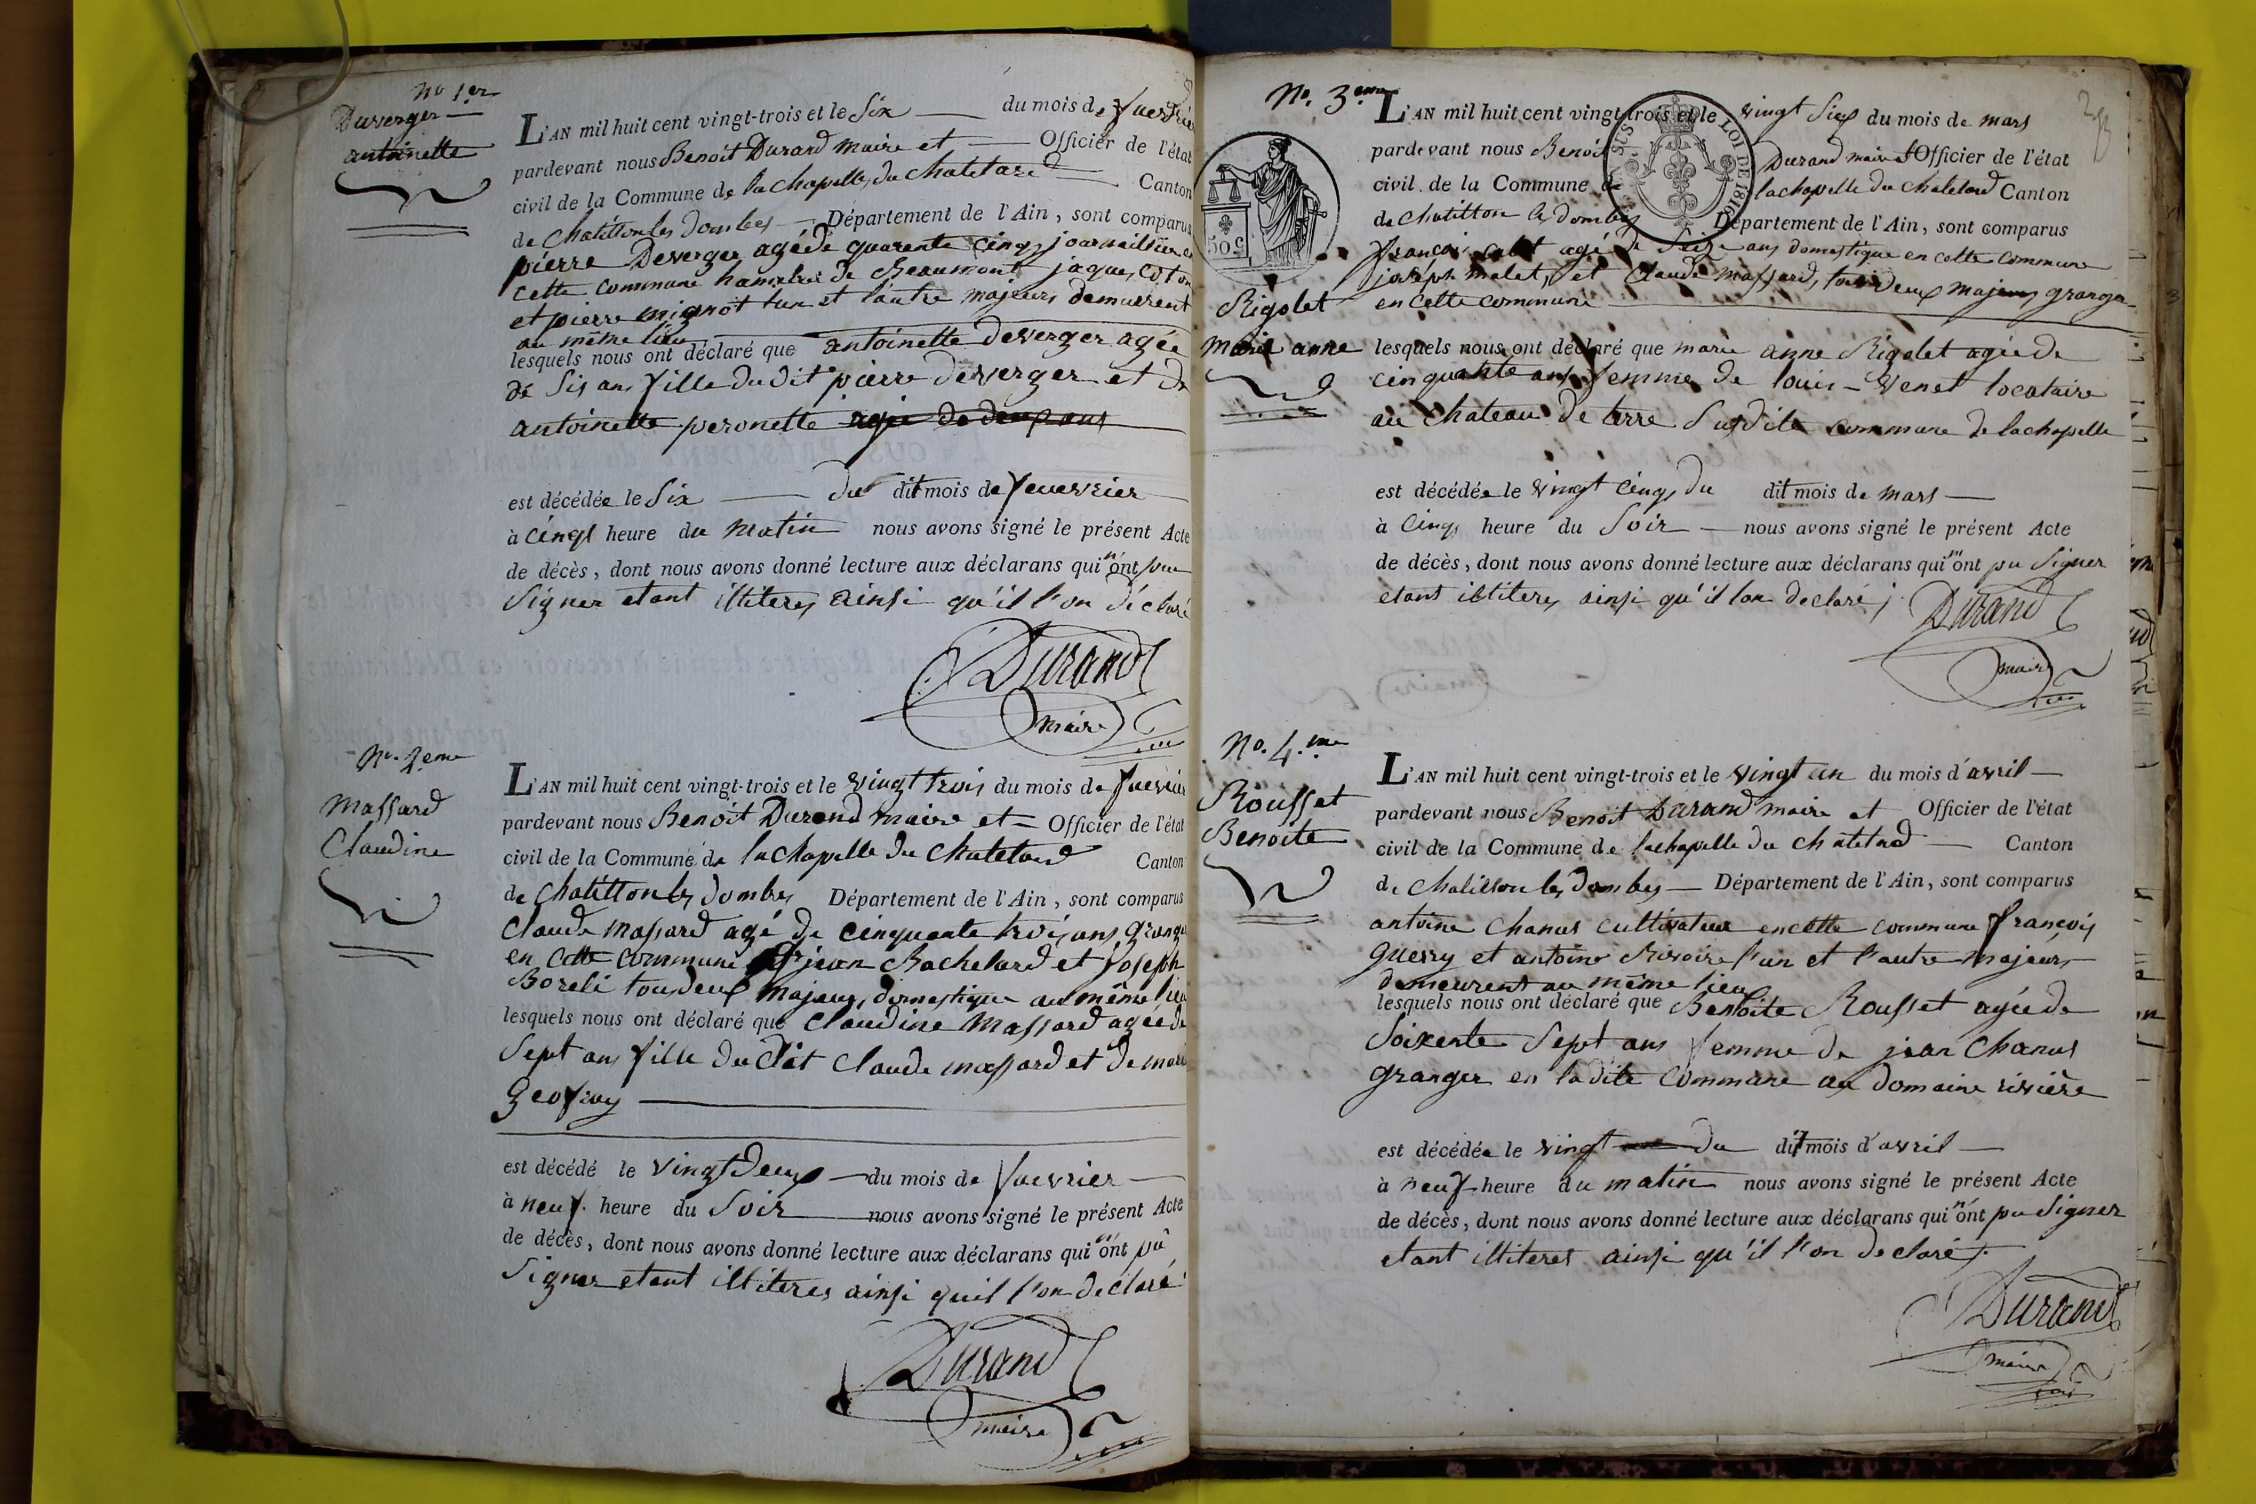 No 1er
Duverger
antoinette
L'AN mil huit cent vingt-trois et le Six du mois de fuevrier
pardevant nous Benoit Durand maire et Officier de l'état
civil de la Commune de la chapelle du chatelard Canton
de chatillon les dombes Département de l'Ain, sont comparus
pierre Deverger agé de quarante cinq journaillier en
cette commune hameau de Beaumont jaques coton
et pierre mignot l'un et l'autre majeurs demeurent
au même lieu
lesquels nous ont déclaré que antoinette deverger agée
de Six ans fille du dit pierre deverger et de
antoinette peronette agée de deux ans
est décédée le Six du dit mois de feuevrier
à cinq heure du matin nous avons signé le présent Acte
de décès, dont nous avons donné lecture aux déclarans qui n'ont pu
Signer etant illiteres ainsi qu'il l'on déclaré
Durand
maire
No. 2eme
Massard
Claudine
L'AN mil huit cent vingt-trois et le vingt trois du mois de fuevrier
pardevant nous Benoit Durand maire et Officier de l'état
civil de la Commune de la chapelle du chatelard Canton
de chatillon les dombes Département de l'Ain, sont comparus
Claude massard agé de cinquante trois ans granger
en cette commune jean Bachelard et joseph
Boreli tous deux majeurs, domestique au même lieu
lesquels nous ont déclaré que Claudine Massard agée de
Sept ans fille du dit Claude massard et de marie
geofray
est décédé le vingt deux du mois de fuevrier
à neuf heure du Soir nous avons signé le présent Acte
de décès, dont nous avons donné lecture aux déclarans qui n'ont pû
Signer etant illiteres ainsi quil l'on declaré
Durand
maire
No. 3eme
50c
SUS LOI DE 1816
Rigolet
marie anne
L'AN mil huit cent vingt-trois et le vingt Six du mois de mars
pardevant nous Benoit Durand maire et Officier de l'état
civil de la Commune de lachapelle du chatelard Canton
de chatillon le dombes Département de l'Ain, sont comparus
françois agé de Seize ans domestique en cette commune
joseph malet, et Claude massard, tous deux majeurs granger
en cette commune
lesquels nous ont déclaré que marie anne Rigolet agée de
cinquante ans femme de louis Venet locataire
au chateau de terre Susdite commune de lachapelle
est décédée le vingt cinq du dit mois de mars
à cinq heure du Soir nous avons signé le présent Acte
de décès, dont nous avons donné lecture aux déclarans qui n'ont pu Signer
etant illiteres ainsi qu'il lon declaré
Durand
maire
No. 4.me
Rousset
Benoite
L'AN mil huit cent vingt-trois et le vingt un du mois d'avril
pardevant nous Benoit Durand maire et Officier de l'état
civil de la Commune de lachapelle du chatelard Canton
de chatillon les dombes Département de l'Ain, sont comparus
antoine chanus cultivateur en cette commune françois
guerry et antoine Rivoire l'un et l'autre majeurs
demeurent au même lieu
lesquels nous ont déclaré que Benoite Rousset agée de
Soixente Sept ans femme de jean Chanus
granger en la dite commune au domaine rivière
est décédée le vingt du dit mois d'avril
à neuf heure du matin nous avons signé le présent Acte
de décès, dont nous avons donné lecture aux déclarans qui n'ont pu Signer
etant illiteres ainsi qu'il l'on declaré
Durand
maire